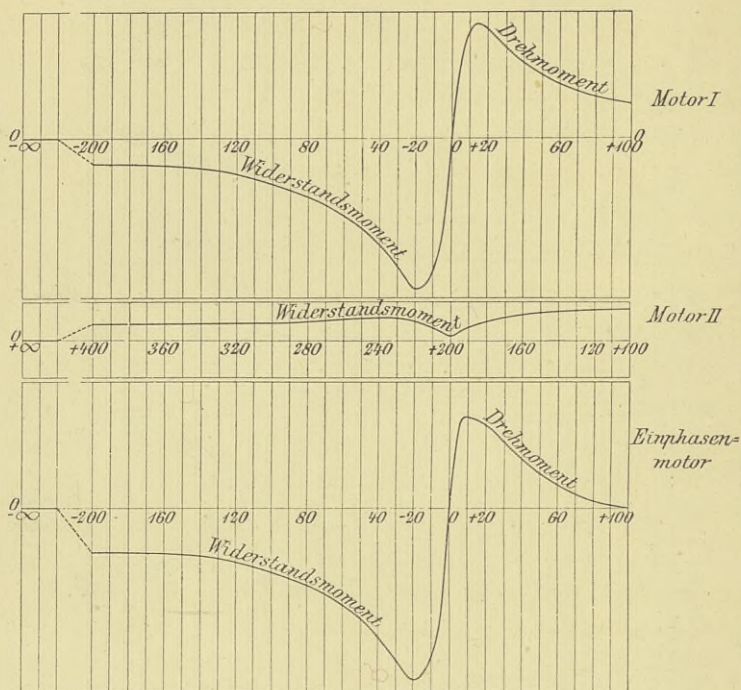 Drehmoment
Motor I
0 0
-∞ -200 160 120 80 40 -20 0 +20 60 +100
Widerstandsmoment
Widerstandsmoment
Motor II
0
+∞ +400 360 320 280 240 +200 160 120 +100
Drehmoment
Einphasen=
motor
0
-∞ -200 160 120 80 40 -20 0 +20 60 +100
Widerstandsmoment